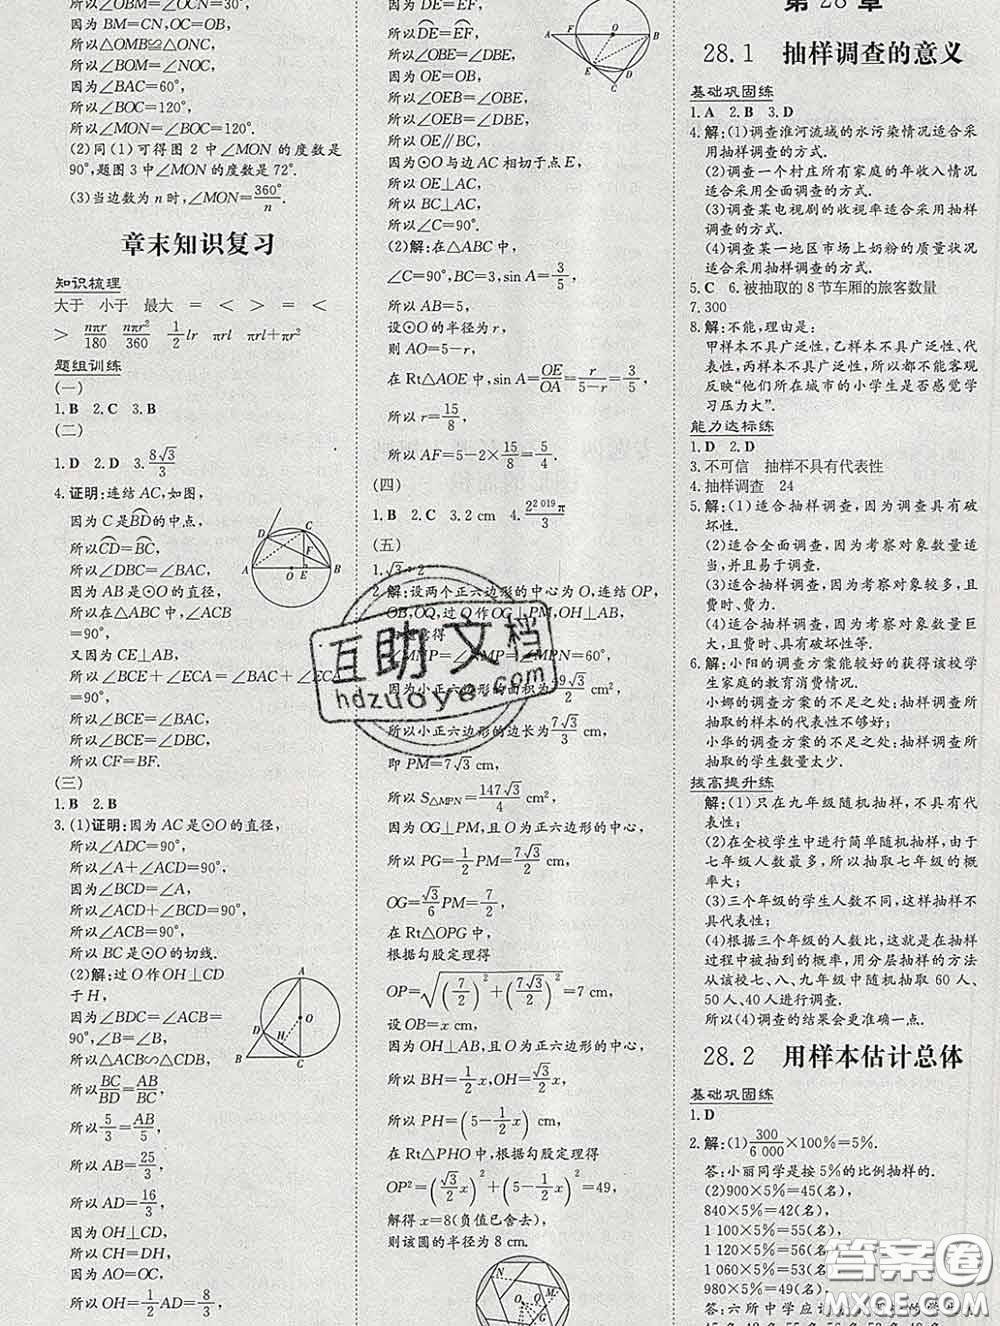 所以∠OBM=∠OCN=30°,
因为 BM=CN,OC=OB,
所以△OMB≌△ONC,
所以∠BOM=∠NOC,
因为∠BAC=60°,
所以∠BOC=120°,
所以∠MON=∠BOC=120°.
(2)同(1)可得图 2 中∠MON 的度数是
90°,题图 3 中∠MON 的度数是 72°.
(3)当边数为 n 时,∠MON=360°/n.
章末知识复习
知识梳理
大于 小于 最大 = < > = <
> nπr/180 nπr²/360 1/2 lr πrl πrl+πr²
题组训练
(一)
1.B 2.C 3.B
(二)
1.D 2.D 3.8√3/3
4.证明:连结 AC,如图,
因为 C 是BD的中点,
所以CD=BC,
所以∠DBC=∠BAC,
因为 AB 是⊙O 的直径,
所以在△ABC 中,∠ACB
=90°,
又因为 CE⊥AB,
所以∠BCE+∠ECA=∠BAC+∠ECA
=90°,
所以∠BCE=∠BAC,
所以∠BCE=∠DBC,
所以 CF=BF.
(三)
1.B 2.B
3.(1)证明:因为 AC 是⊙O 的直径,
所以∠ADC=90°,
所以∠A+∠ACD=90°,
因为∠BCD=∠A,
所以∠ACD+∠BCD=90°,
所以∠ACB=90°,
所以 BC 是⊙O 的切线.
(2)解:过 O 作 OH⊥CD
于 H,
因为∠BDC=∠ACB=
90°,∠B=∠B,
所以△ACB∽△CDB,
所以BC/BD=AB/BC,
所以5/3=AB/5,
所以 AB=25/3,
所以 AD=16/3,
因为 OH⊥CD,
所以 CH=DH,
因为 AO=OC,
所以 OH=1/2 AD=8/3,
因为DE=EF,
所以DE=EF,
所以∠OBE=∠DBE,
因为 OE=OB,
所以∠OEB=∠OBE,
所以∠OEB=∠DBE,
所以 OE∥BC,
因为⊙O 与边 AC 相切于点 E,
所以 OE⊥AC,
所以 BC⊥AC,
(2)解:在△ABC 中,
∠C=90°,BC=3,sin A=3/5,
所以 AB=5,
设⊙O 的半径为 r,
则 AO=5-r,
在 Rt△AOE 中,sin A=OE/OA=r/(5-r)=3/5,
所以 r=15/8,
所以 AF=5-2×15/8=5/4.
(四)
1.B 2.C 3.2 cm 4.2^2 019π/3
(五)
1.√3+2
2.解:设两个正六边形的中心为 O,连结 OP,
OB,OQ,过 O 作 OG⊥PM,OH⊥AB,
=∠MPN=60°,
因为小正六边形的面积为49√3/2 cm²,
所以小正六边形的边长为7√3/3 cm,
即 PM=7√3 cm,
所以 S△MPN=147√3/4 cm²,
因为 OG⊥PM,且 O 为正六边形的中心,
所以 PG=1/2 PM=7√3/2 cm,
OG=√3/6 PM=7/2,
在 Rt△OPG 中,
根据勾股定理得
OP=√((7/2)²+(7√3/2)²)=7 cm,
设 OB=x cm,
因为 OH⊥AB,且 O 为正六边形的中心,
所以 BH=1/2 x,OH=√3/2 x,
所以 PH=(5-1/2 x) cm,
在 Rt△PHO 中,根据勾股定理得
OP²=(√3/2 x)²+(5-1/2 x)²=49,
解得 x=8(负值已舍去),
则该圆的半径为 8 cm.
第 28 章
28.1 抽样调查的意义
基础巩固练
1.A 2.B 3.D
4.解:(1)调查淮河流域的水污染情况适合采
用抽样调查的方式.
(2)调查一个村庄所有家庭的年收入情况
适合采用全面调查的方式.
(3)调查某电视剧的收视率适合采用抽样
调查的方式.
(4)调查某一地区市场上奶粉的质量状况
适合采用抽样调查的方式.
5.C 6.被抽取的 8 节车厢的旅客数量
7.300
8.解:不能,理由是:
甲样本不具广泛性,乙样本不具广泛性、代
表性,丙样本不具广泛性,所以都不能客观
反映“他们所在城市的小学生是否感觉学
习压力大”.
能力达标练
1.D 2.D
3.不可信 抽样不具有代表性
4.抽样调查 24
5.解:(1)适合抽样调查,因为考察具有破
坏性.
(2)适合全面调查,因为考察对象数量适
当,并且易于调查.
(3)适合抽样调查,因为考察对象较多,且
费时、费力.
(4)适合抽样调查,因为考察对象数量巨
大,且费时、具有破坏性等.
6.解:小阳的调查方案能较好的获得该校学
生家庭的教育消费情况.
小娜的调查方案的不足之处:抽样调查所
抽取的样本的代表性不够好;
小华的调查方案的不足之处:抽样调查所
抽取的学生数量太少.
拔高提升练
解:(1)只在九年级随机抽样,不具有代
表性;
(2)在全校学生中进行简单随机抽样,由于
七年级人数最多,所以抽取七年级的可能
概率大;
(3)三个年级的学生人数不同,这样抽样不
具代表性;
(4)根据三个年级的人数比,这就是在抽样
过程中被抽到的概率,用分层抽样的方法
从该校七、八、九年级中随机抽取 60 人、
50 人、40 人进行调查.
所以(4)调查的结果会更准确一点.
28.2 用样本估计总体
基础巩固练
1.D
2.解:(1)300/6 000×100%=5%.
答:小丽同学是按 5%的比例抽样的.
(2)900×5%=45(名),
840×5%=42(名),
1 100×5%=55(名),
1 120×5%=56(名),
1 060×5%=53(名),
980×5%=49(名),
互助文档
hdzuoye.com
答案圈